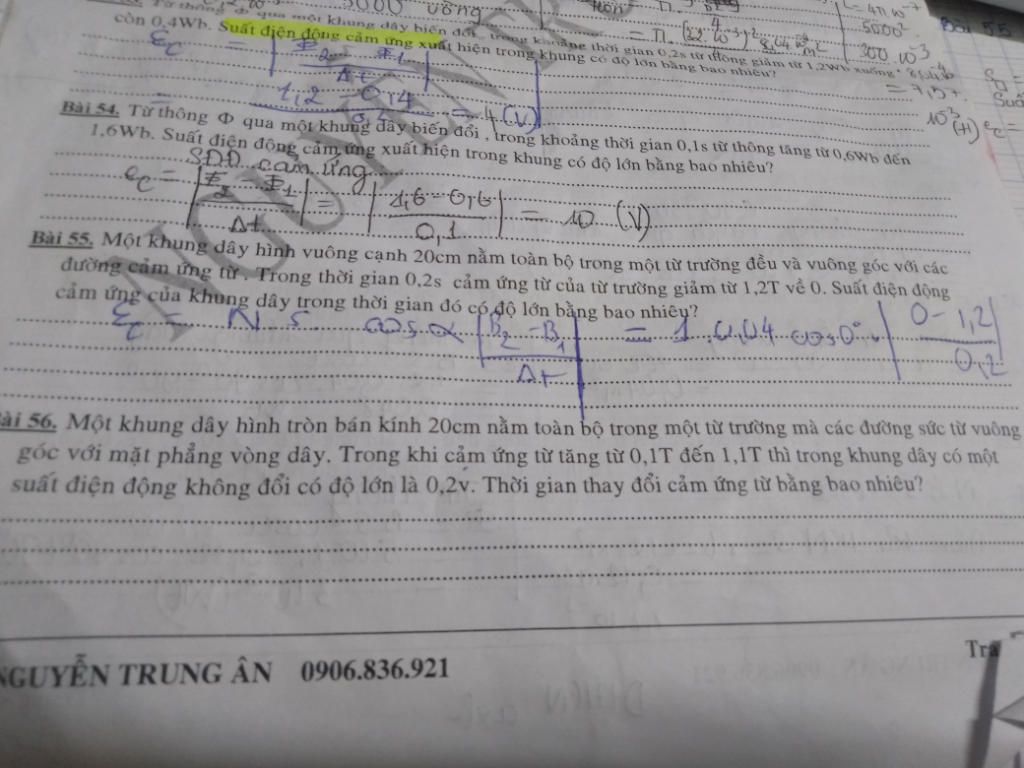 5000 vòng
5000
300.10⁻³
Bài 55
Từ thông Φ qua một khung dây biến đổi, trong khoảng thời gian 0,2s từ thông giảm từ 1,2Wb xuống
còn 0,4Wb. Suất điện động cảm ứng xuất hiện trong khung có độ lớn bằng bao nhiêu?
= 1,2 - 0,4 = 4 (V)
Bài 54. Từ thông Φ qua một khung dây biến đổi , trong khoảng thời gian 0,1s từ thông tăng từ 0,6Wb đến
1,6Wb. Suất điện động cảm ứng xuất hiện trong khung có độ lớn bằng bao nhiêu?
SĐĐ cảm ứng
e_C = |Φ₂ - Φ₁ / Δt| = |1,6 - 0,6 / 0,1| = 10 (V)
Bài 55. Một khung dây hình vuông cạnh 20cm nằm toàn bộ trong một từ trường đều và vuông góc với các
đường cảm ứng từ . Trong thời gian 0,2s cảm ứng từ của từ trường giảm từ 1,2T về 0. Suất điện động
cảm ứng của khung dây trong thời gian đó có độ lớn bằng bao nhiêu?
Ɛ_C = N.S. cos.α |B₂ - B₁ / Δt| = 1.0,04.cos0°.|0 - 1,2 / 0,2|
Bài 56. Một khung dây hình tròn bán kính 20cm nằm toàn bộ trong một từ trường mà các đường sức từ vuông
góc với mặt phẳng vòng dây. Trong khi cảm ứng từ tăng từ 0,1T đến 1,1T thì trong khung dây có một
suất điện động không đổi có độ lớn là 0,2v. Thời gian thay đổi cảm ứng từ bằng bao nhiêu?
NGUYỄN TRUNG ÂN 0906.836.921